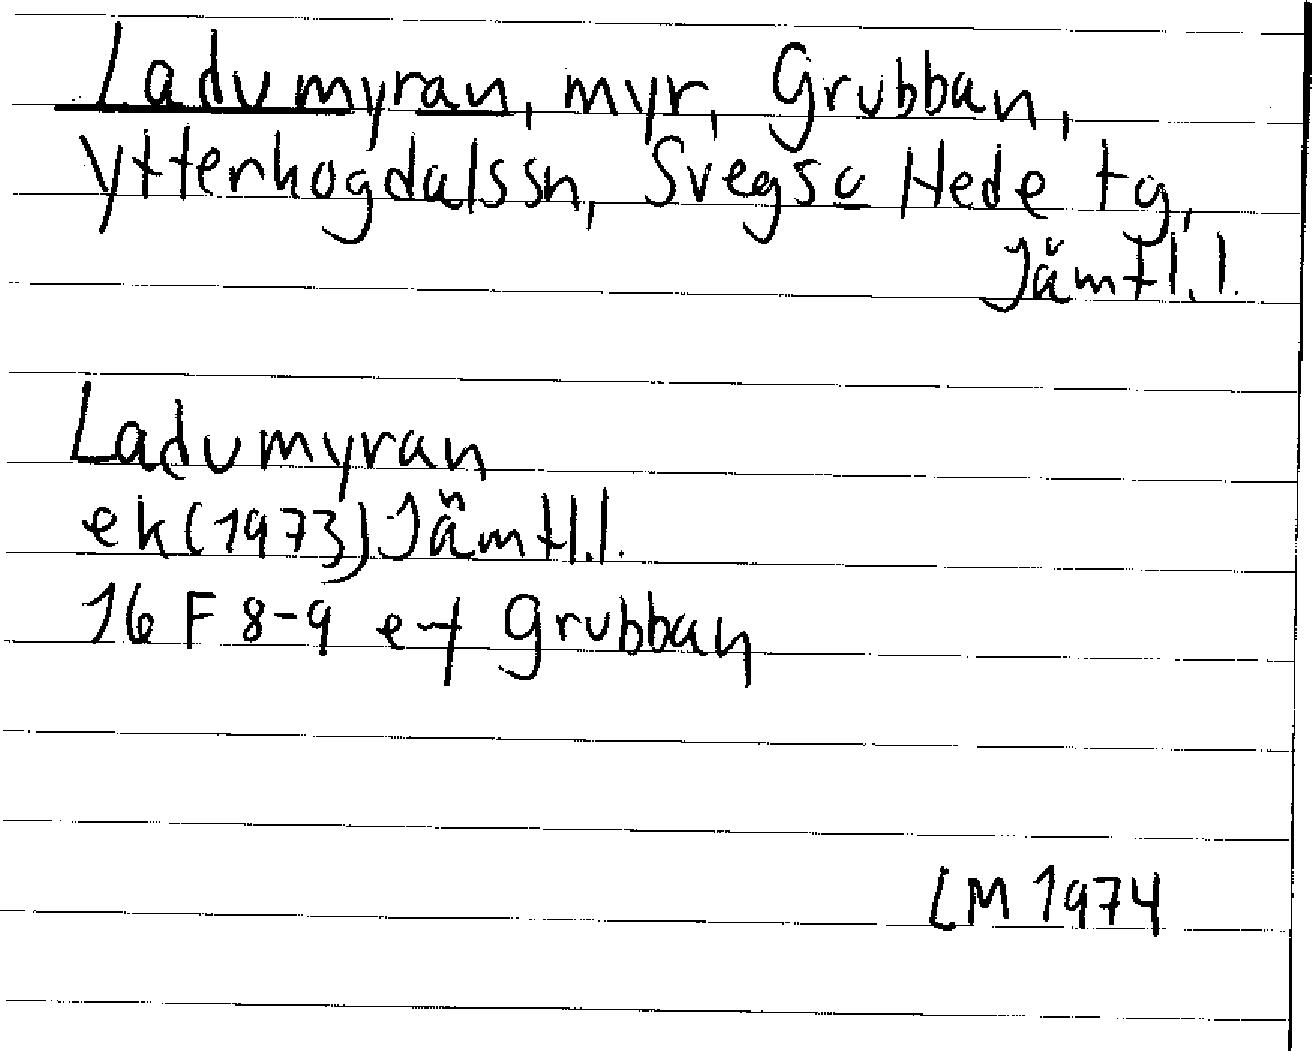 Ladumyran, myr, Grubban,
Ytterhogdalssn, Svegs o Hede tg,
Jämtl.l.
Ladumyran
ek(1973) Jämtl.l.
16 F 8-9 e-f Grubban
LM 1974